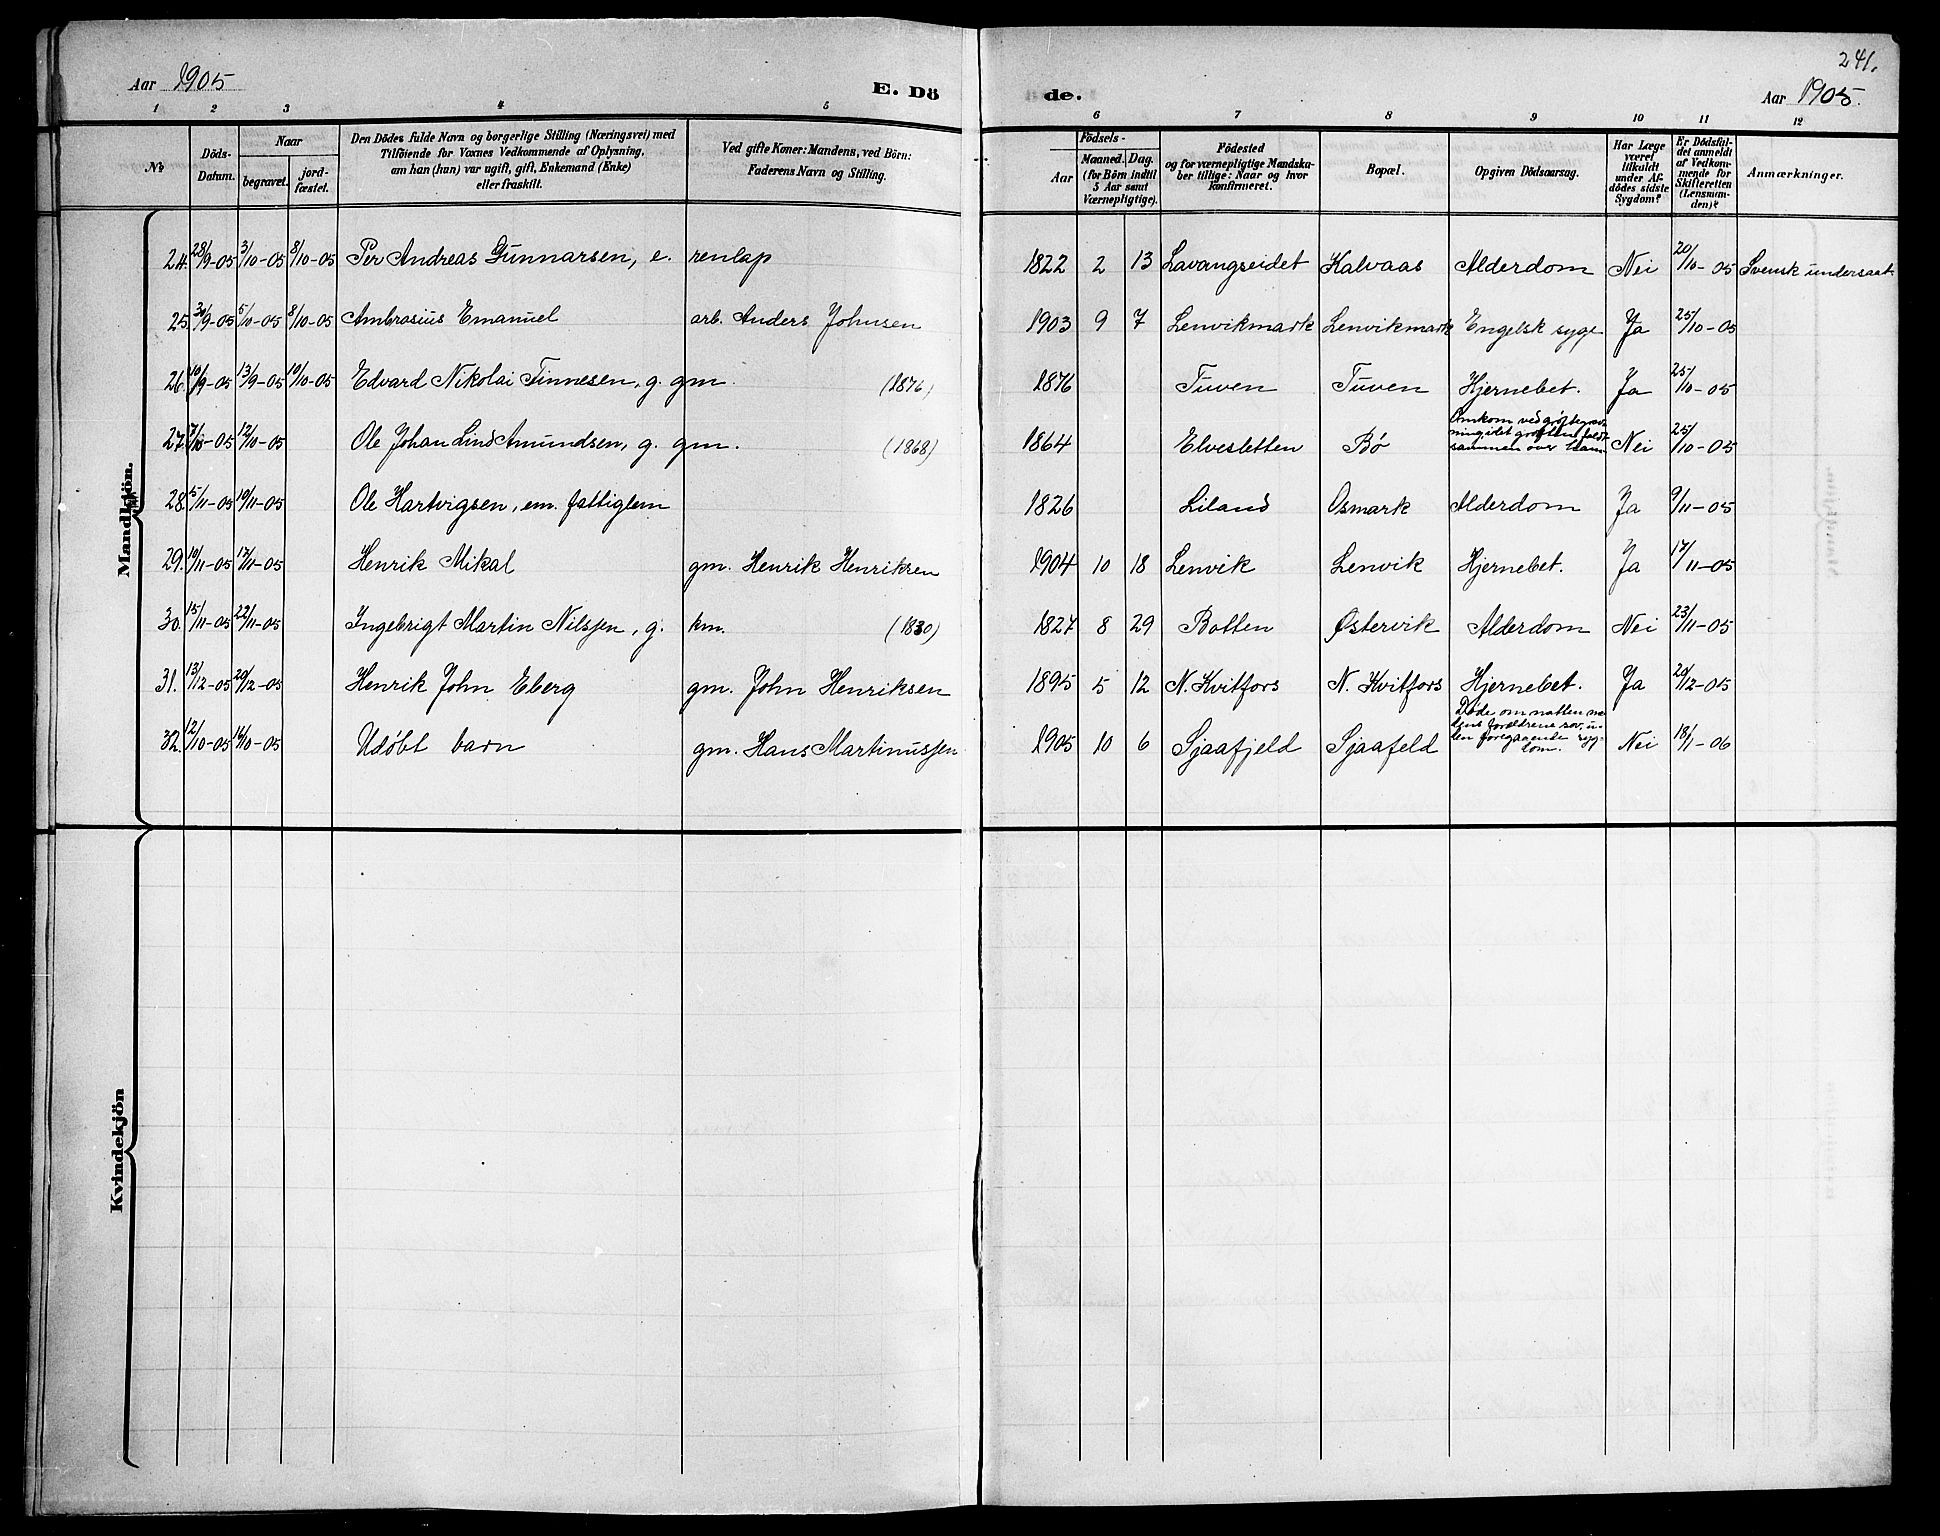 241.
Aar 1905 E. Dö de. Aar 1905.
1 2 3 4 5 6 7 8 9 10 11 12
№ Döds-Datum. Naar begravet. jord-fæstet. Den Dödes fulde Navn og borgerlige Stilling (Næringsvei) med Tilföiende for Voxnes Vedkommende af Oplysning, om han (hun) var ugift, gift, Enkemand (Enke) eller fraskilt. Ved gifte Koner: Mandens, ved Börn: Faderens Navn og Stilling. Födsels- Aar Maaned. Dag. (for Börn indtil 5 Aar samt Værnepligtige). Födested og for værnepligtige Mandskaber tillige: Naar og hvor konfirmeret. Bopæl. Opgiven Dödsaarsag. Har Læge været tilkaldt under Afdödes sidste Sygdom? Er Dödsfaldet anmeldt af Vedkommende for Skifteretten (Lensmanden)? Anmærkninger.
Mandkjön.
24. 28/9-05 3/10-05 8/10-05 Per Andreas Gunnarsen, e. renlap 1822 2 13 Lavangseidet Kalvaas Alderdom Nei 20/10-05 Svensk undersaat
25. 30/9-05 5/10-05 8/10-05 Ambrosius Emanuel arb. Anders Johnsen 1903 9 7 Lenvikmark Lenvikmark Engelsk syge Ja 25/10-05
26. 10/9-05 13/9-05 10/10-05 Edvard Nikolai Finnesen, g. gm. (1876) 1876 Tuven Tuven Hjernebet. Ja 25/10-05
27. 7/10-05 12/10-05 Ole Johan Lind Amundsen, g. gm. (1868) 1864 Elvesletten Bø Omkom ved grøftegravning idet grøften faldt sammen over ham Nei 25/10-05
28. 5/11-05 10/11-05 Ole Hartvigsen, em. fattiglem 1826 Liland Osmark Alderdom Ja 9/11-05
29. 10/11-05 17/11-05 Henrik Mikal gm. Henrik Henriksen 1904 10 18 Lenvik Lenvik Hjernebet. Ja 17/11-05
30. 15/11-05 22/11-05 Ingebrigt Martin Nilssen, g. km. (1830) 1827 8 29 Botten Østervik Alderdom Nei 23/11-05
31. 13/12-05 20/12-05 Henrik John Eberg gm. John Henriksen 1895 5 12 N. Kvitfors N. Kvitfors Hjernebet. Ja 20/12-05
32. 12/10-05 16/10-05 Udøbt barn gm. Hans Martinussen 1905 10 6 Sjaafjeld Sjaafeld Døde om natten medens forældrene sov, uden foregaaende sygdom. Nei 18/1-06
Kvindekjön